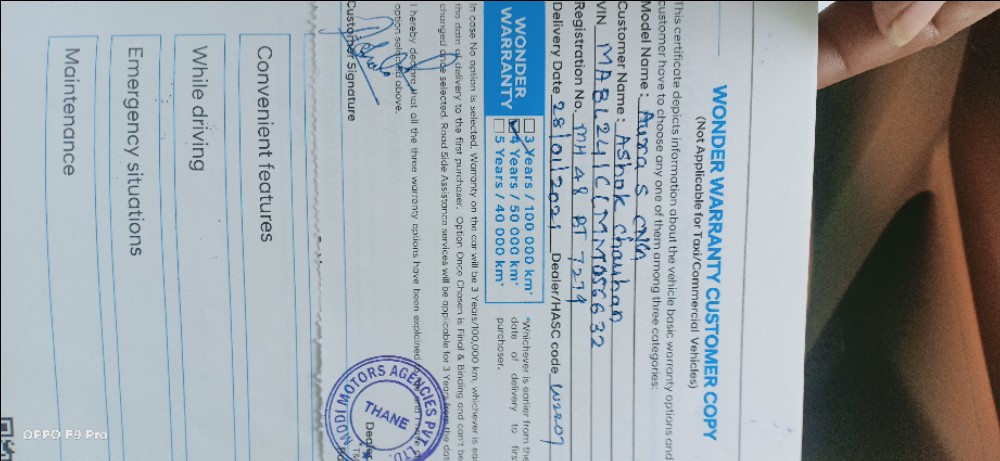 WONDER WARRANTY CUSTOMER COPY
(Not Applicable for Taxi/Commercial Vehicles)
This certificate depicts information about the vehicle basic warranty options and
customer have to choose any one of them among three categories:
Model Name: Aura S CNG
Customer Name: Ashok Chauhan
VIN
Registration No. MH 48 BT 7279
Delivery Date 28/01/2021 Dealer/HASC code
WONDER
WARRANTY
3 Years / 100 000 km*
4 Years / 50 000 km*
5 Years / 40 000 km*
*Whichever is earlier from the
date of delivery to first
purchaser.
In case No option is selected, Warranty on the car will be 3 Years/100,000 km, whichever is
the date of delivery to the first purchaser. Option Once Chosen is Final & Binding and can't be
changed once selected. Road Side Assistance services will be applicable for 3 Years from the
I hereby declare that all the three warranty options have been explained
option selected above.
Customer Signature
MODI MOTORS AGENCIES PVT. LTD.
THANE
Convenient features
While driving
Emergency situations
Maintenance
OPPO F9 Pro